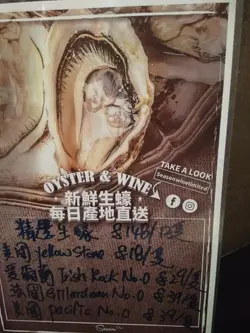 OYSTER & WINE
TAKE A LOOK
Seasonwinelimited
新鮮生蠔
每日產地直送
生蠔 $148/12隻
美國 Yellow Stone $18/隻
愛爾蘭 Irish Rock No.0 $29/隻
法國 Gillardeau No.0 $39/隻
美國 Pacific No.0 $39/隻